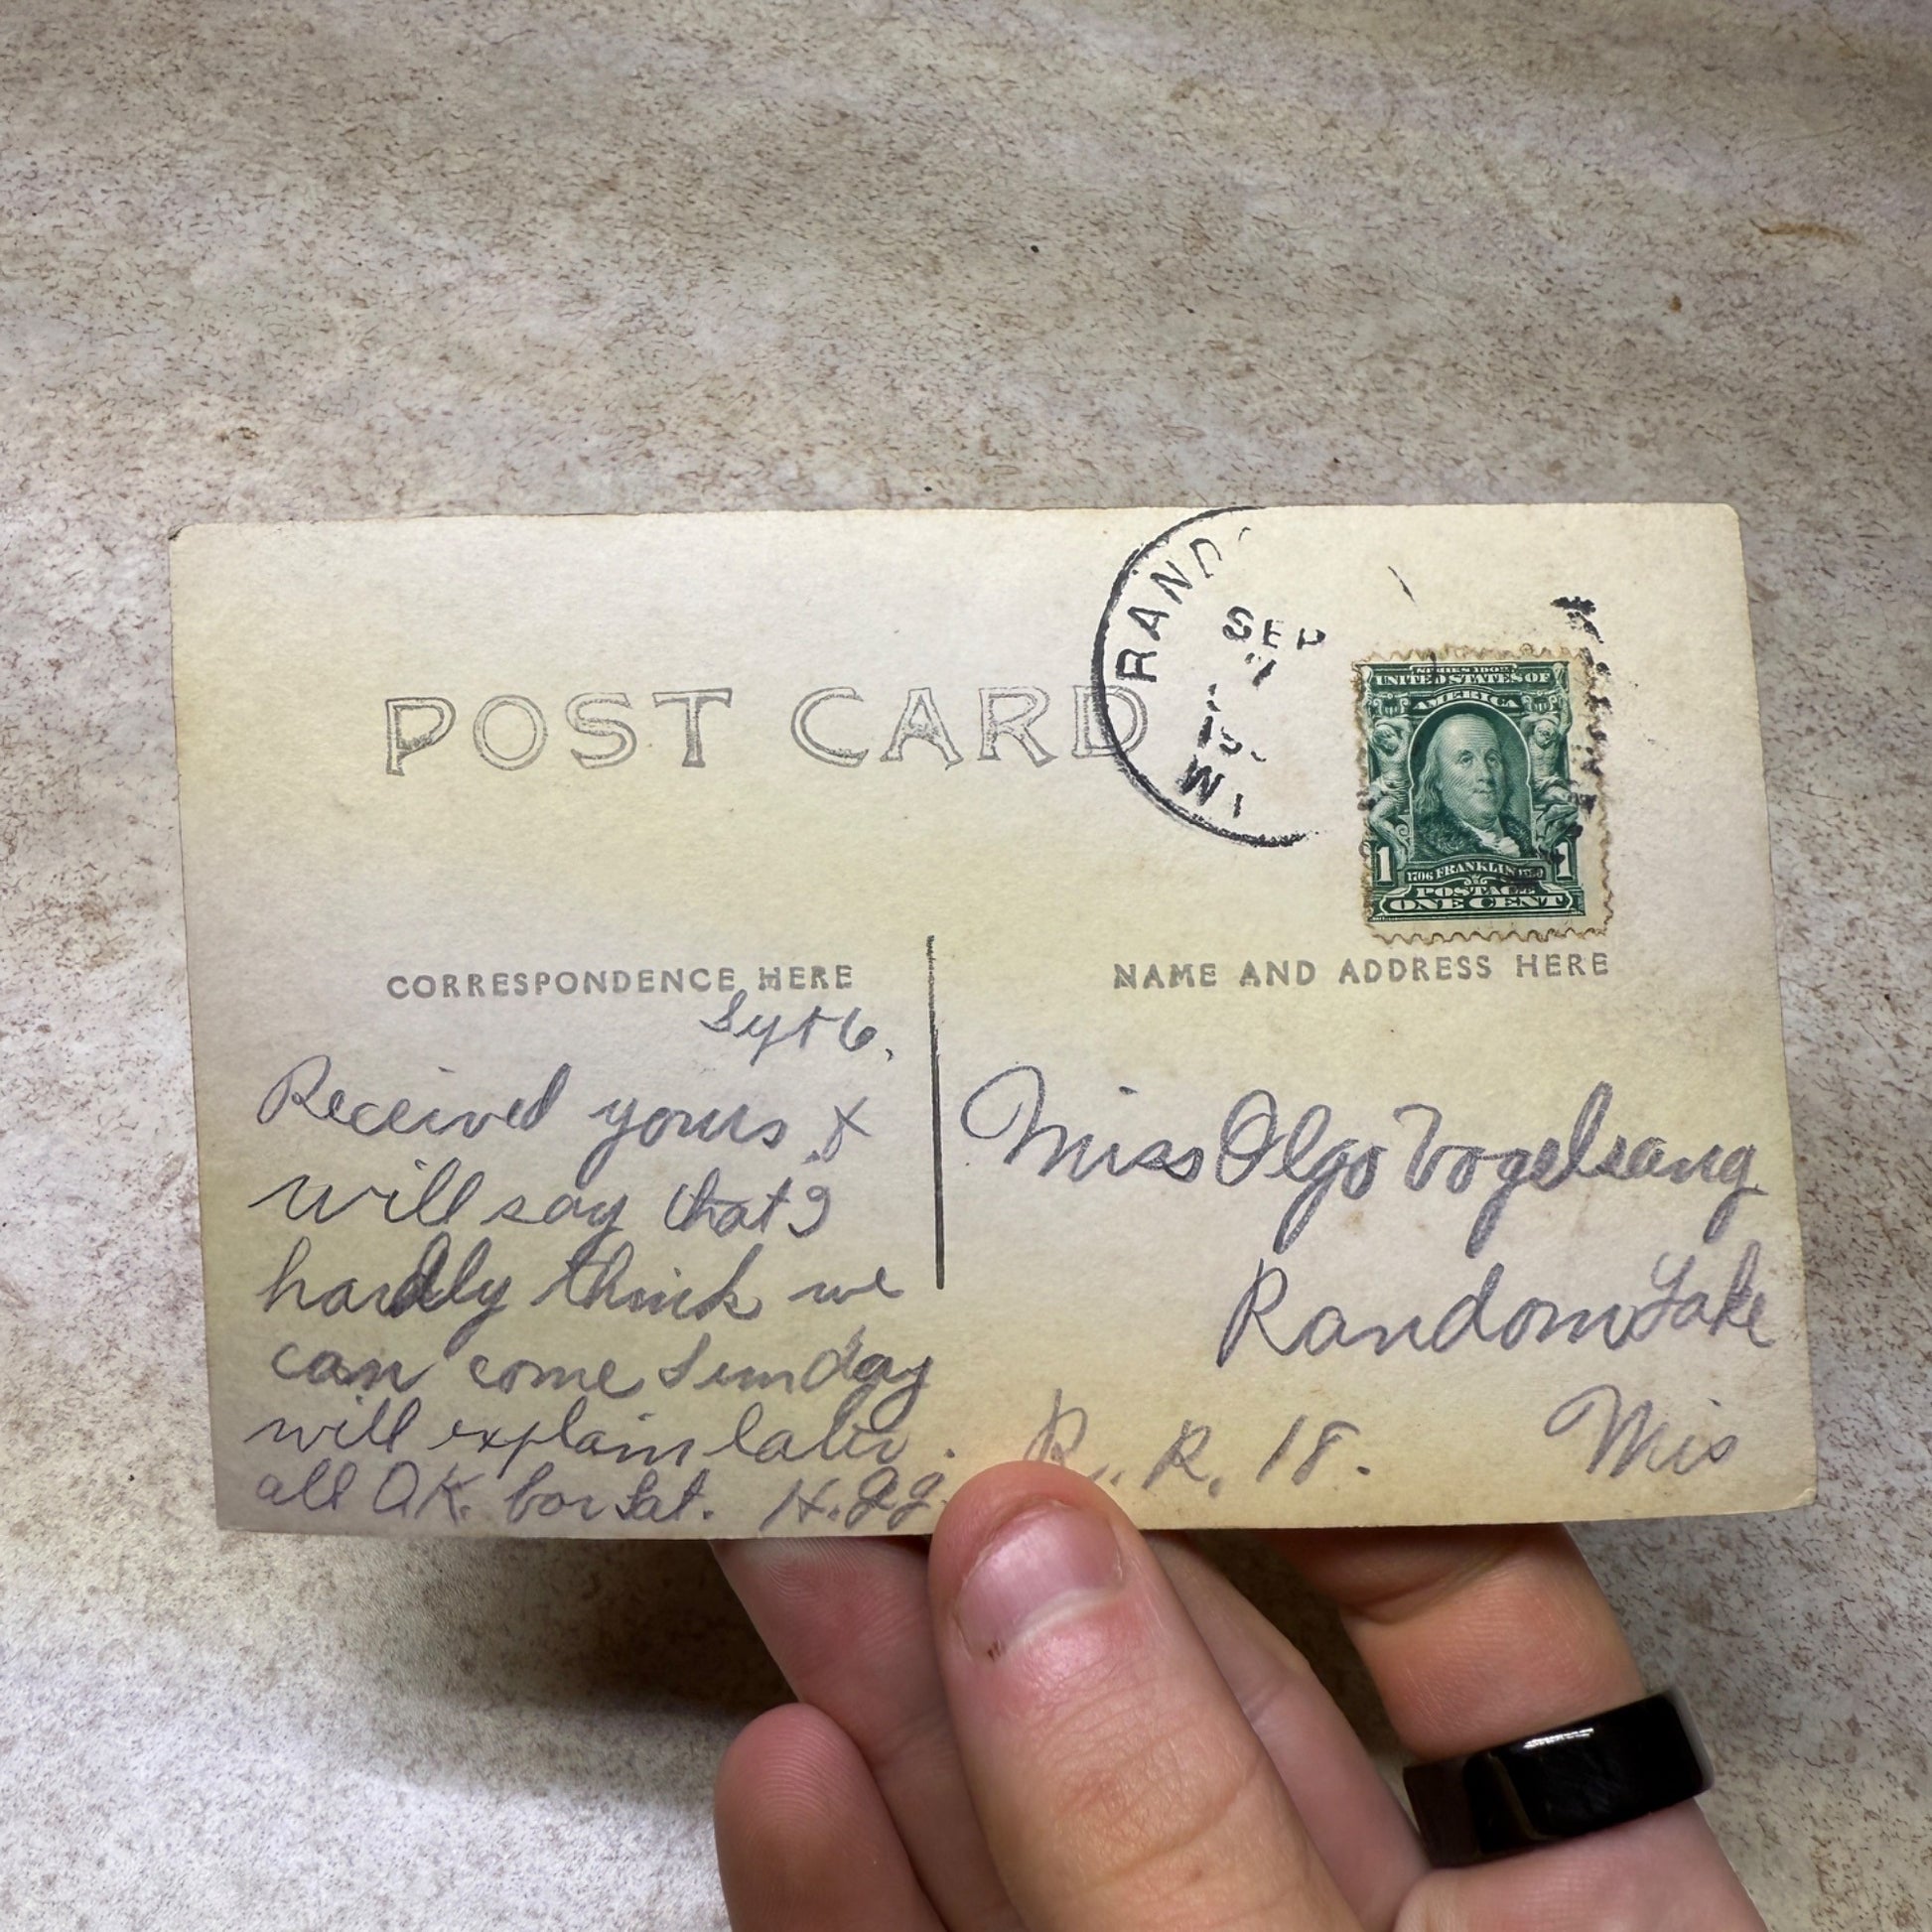 POST CARD
RAND
SEP
7
WI
SERIES 1902
UNITED STATES OF
AMERICA
1 1706 FRANKLIN 1790 1
POSTAGE
ONE CENT
CORRESPONDENCE HERE
Sept 6.
Received yours &
will say that I
hardly think we
can come Sunday
will explain later.
all O.K. for Sat. H.
NAME AND ADDRESS HERE
Miss Olga Vogelsang
Random Lake
R. R. 18. Wis